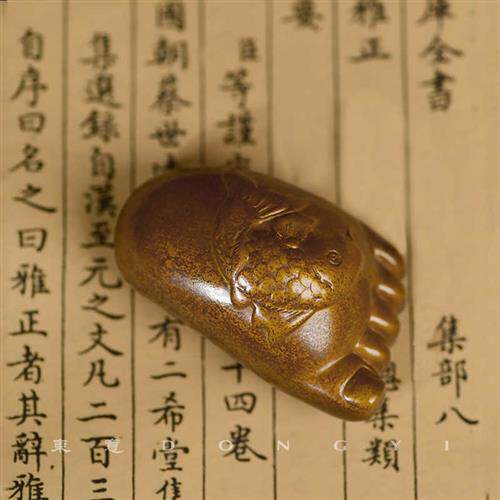 庫全書
集部八
雅正
集類
要
臣等謹
十四卷
國朝蔡世
有二希堂
集選錄自漢至元之文凡二百三
自序曰名之曰雅正者其辭雅
東 DONGYI